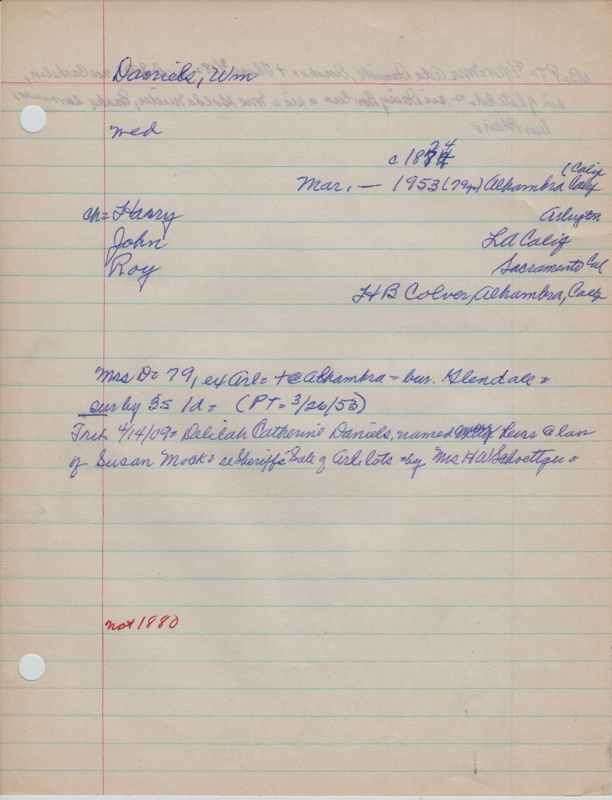 Daniels, Wm
med
c 1874 24
Mar. — 1953 (79yr) Alhambra Calif
(Calif
ch = Harry Arlington
John LA Calif
Roy Sacramento Cal
H B Colver, Alhambra, Calif
Mrs D = 79, ex Arl = + @ Alhambra = bur. Glendale =
sur by 3s 1d = (PT = 3/26/53)
Trib 4/14/09 = Delilah Catherine Daniels, named heirs @ law
of Susan Mock = re Sheriff's Sale of Arl lots = by Mrs H W Schoettger =
not 1880